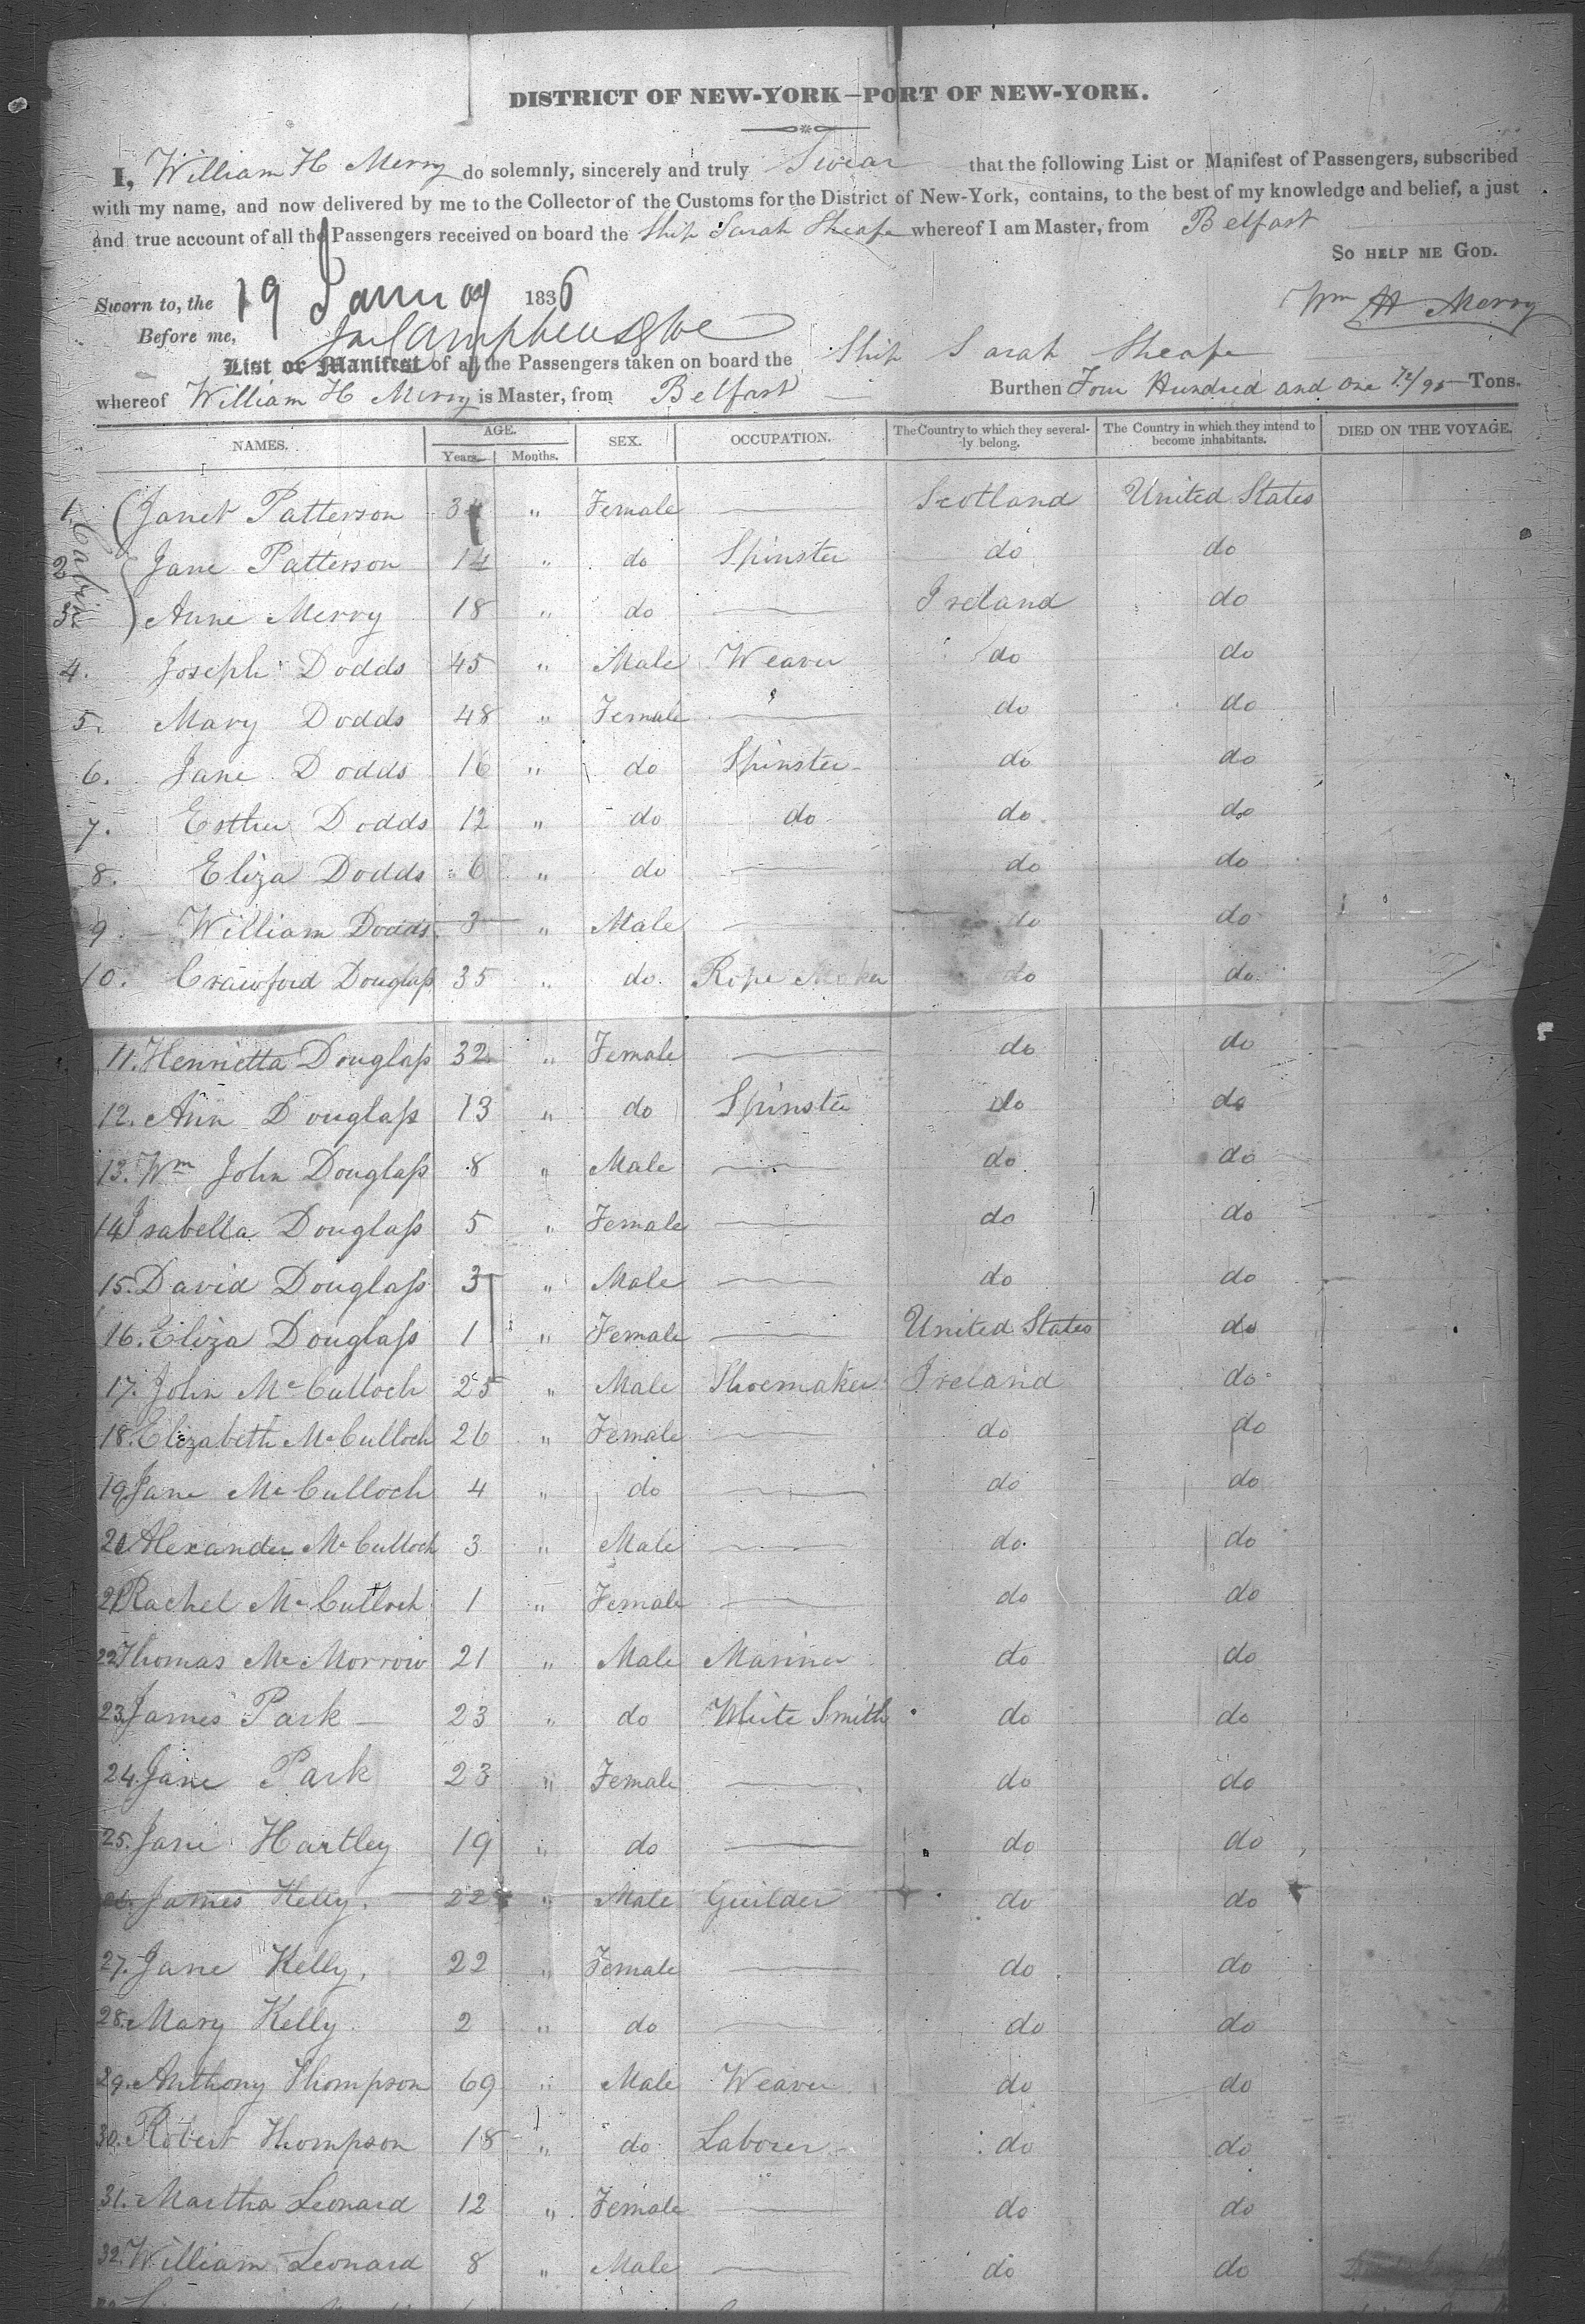 DISTRICT OF NEW-YORK—PORT OF NEW-YORK.
I, William H Merry do solemnly, sincerely and truly Swear that the following List or Manifest of Passengers, subscribed
with my name, and now delivered by me to the Collector of the Customs for the District of New-York, contains, to the best of my knowledge and belief, a just
and true account of all the Passengers received on board the Ship Sarah Sheafe whereof I am Master, from Belfast
SO HELP ME GOD.
Sworn to, the 19 January 1836
Wm H Merry
Before me,
List or Manifest of all the Passengers taken on board the Ship Sarah Sheafe
whereof William H Merry is Master, from Belfast Burthen Four Hundred and One 74/95 Tons.
NAMES. AGE. SEX. OCCUPATION. The Country to which they severally belong. The Country in which they intend to become inhabitants. DIED ON THE VOYAGE.
Years. Months.
Cabin
1. Janet Patterson 34 " Female — Scotland United States
2 Jane Patterson 14 " do Spinster do do
3 Anne Merry 18 " do — Ireland do
4. Joseph Dodds 45 " Male Weaver do do
5. Mary Dodds 48 " Female — do do
6. Jane Dodds 16 " do Spinster do do
7. Esther Dodds 12 " do do do do
8. Eliza Dodds 6 " do — do do
9. William Dodds 3 " Male — do do
10. Crawford Douglass 35 " do Rope Maker do do
11. Henrietta Douglass 32 " Female — do do
12. Ann Douglass 13 " do Spinster do do
13. Wm John Douglass 8 " Male — do do
14 Isabella Douglass 5 " Female — do do
15. David Douglass 3 " Male — do do
16. Eliza Douglass 1 " Female — United States do
17. John McCulloch 25 " Male Shoemaker Ireland do
18. Elizabeth McCulloch 26 " Female — do do
19 Jane McCulloch 4 " do — do do
20 Alexander McCulloch 3 " Male — do do
21 Rachel McCulloch 1 " Female — do do
22 Thomas McMorrow 21 " Male Mariner do do
23. James Park 23 " do White Smith do do
24. Jane Park 23 " Female — do do
25. Jane Hartley 19 " do — do do
26. James Kelly. 22 " Male Guilder do do
27. Jane Kelly. 22 " Female — do do
28. Mary Kelly 2 " do — do do
29. Anthony Thompson 69 " Male Weaver do do
30. Robert Thompson 18 " do Laborer do do
31. Martha Leonard 12 " Female — do do
32. William Leonard 8 " Male — do do